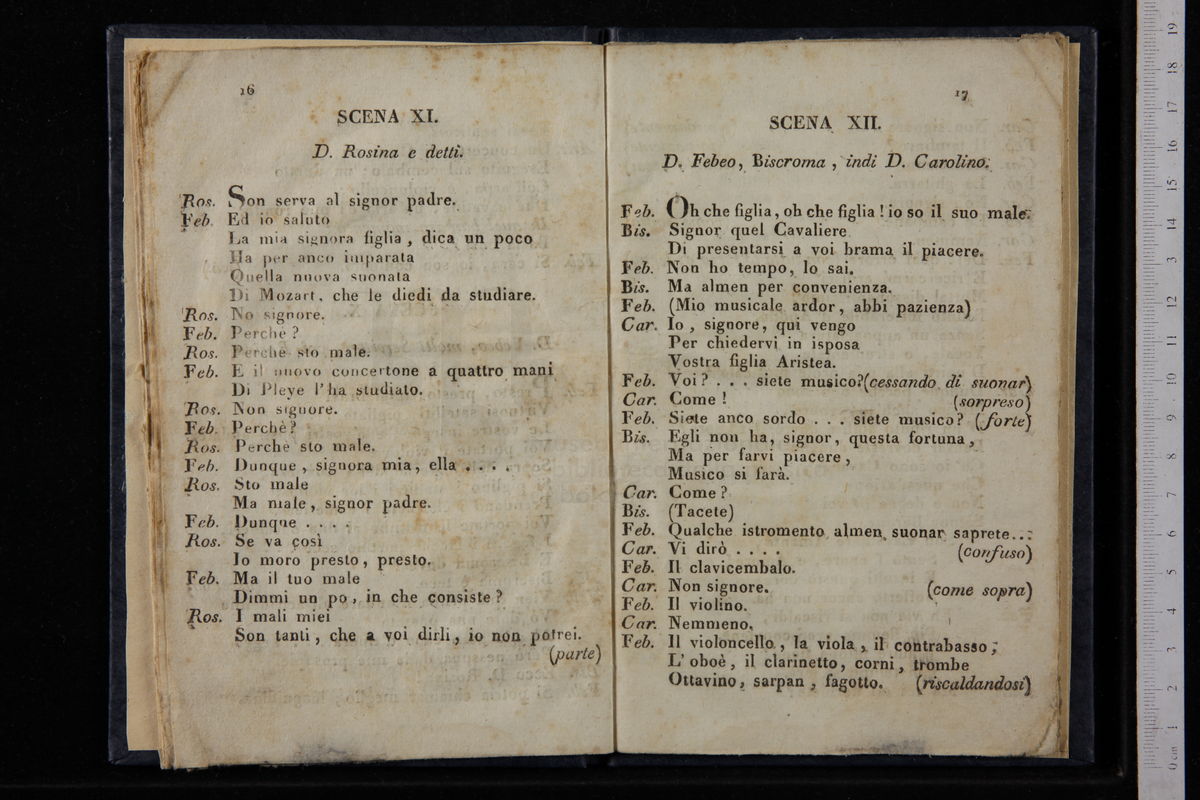 16
SCENA XI.
D. Rosina e detti.
Ros. Son serva al signor padre.
Feb. Ed io saluto
La mia signora figlia, dica un poco
Ha per anco imparata
Quella nuova suonata
Di Mozart, che le diedi da studiare.
Ros. No signore.
Feb. Perchè?
Ros. Perchè sto male.
Feb. E il nuovo concertone a quattro mani
Di Pleye l'ha studiato.
Ros. Non signore.
Feb. Perchè?
Ros. Perchè sto male.
Feb. Dunque, signora mia, ella . . . .
Ros. Sto male
Ma male, signor padre.
Feb. Dunque . . . .
Ros. Se va così
Io moro presto, presto.
Feb. Ma il tuo male
Dimmi un po, in che consiste?
Ros. I mali miei
Son tanti, che a voi dirli, io non potrei.
(parte)
17
SCENA XII.
D. Febeo, Biscroma, indi D. Carolino.
Feb. Oh che figlia, oh che figlia! io so il suo male.
Bis. Signor quel Cavaliere
Di presentarsi a voi brama il piacere.
Feb. Non ho tempo, lo sai.
Bis. Ma almen per convenienza.
Feb. (Mio musicale ardor, abbi pazienza)
Car. Io, signore, qui vengo
Per chiedervi in isposa
Vostra figlia Aristea.
Feb. Voi? . . . siete musico? (cessando di suonar)
Car. Come! (sorpreso)
Feb. Siete anco sordo . . . siete musico? (forte)
Bis. Egli non ha, signor, questa fortuna,
Ma per farvi piacere,
Musico si farà.
Car. Come?
Bis. (Tacete)
Feb. Qualche istromento almen suonar saprete...
Car. Vi dirò . . . . (confuso)
Feb. Il clavicembalo.
Car. Non signore. (come sopra)
Feb. Il violino.
Car. Nemmeno.
Feb. Il violoncello, la viola, il contrabasso;
L'oboè, il clarinetto, corni, trombe
Ottavino, sarpan, fagotto. (riscaldandosi)
0 cm 1 2 3 4 5 6 7 8 9 10 11 12 13 14 15 16 17 18 19